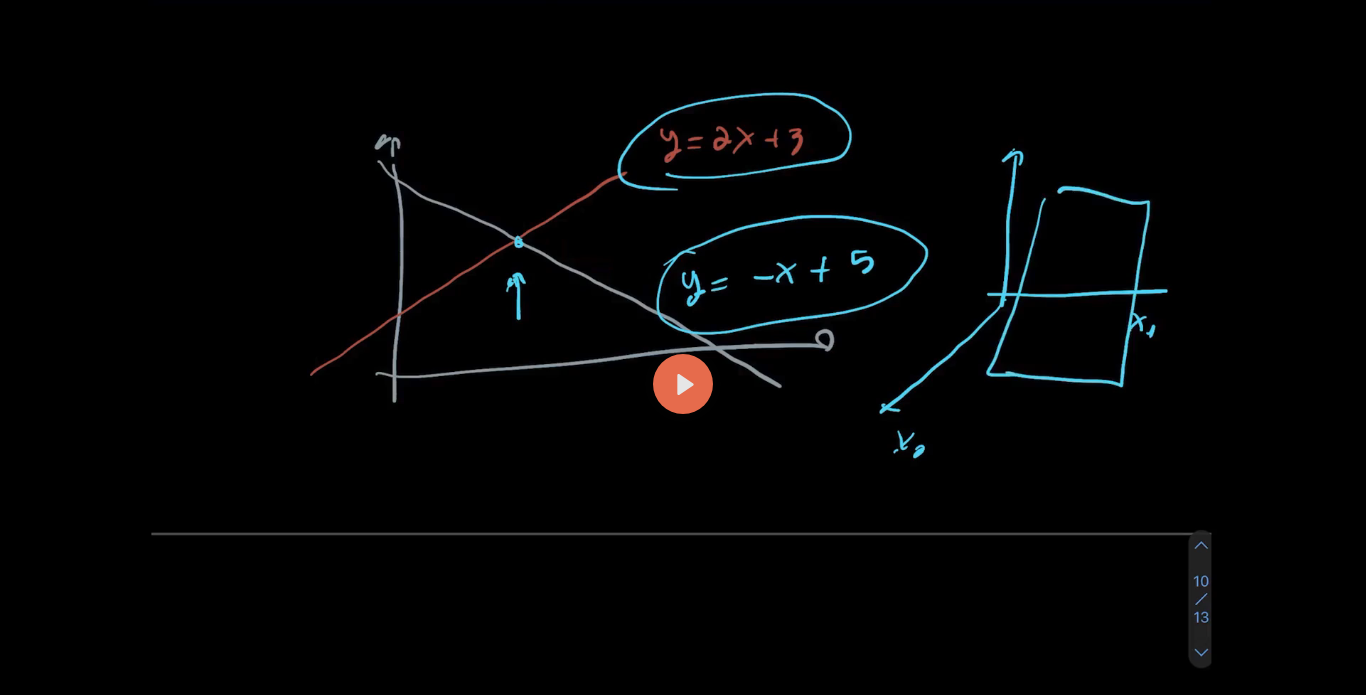 y = 2x + 3
y = -x + 5
x₁
10
/
13